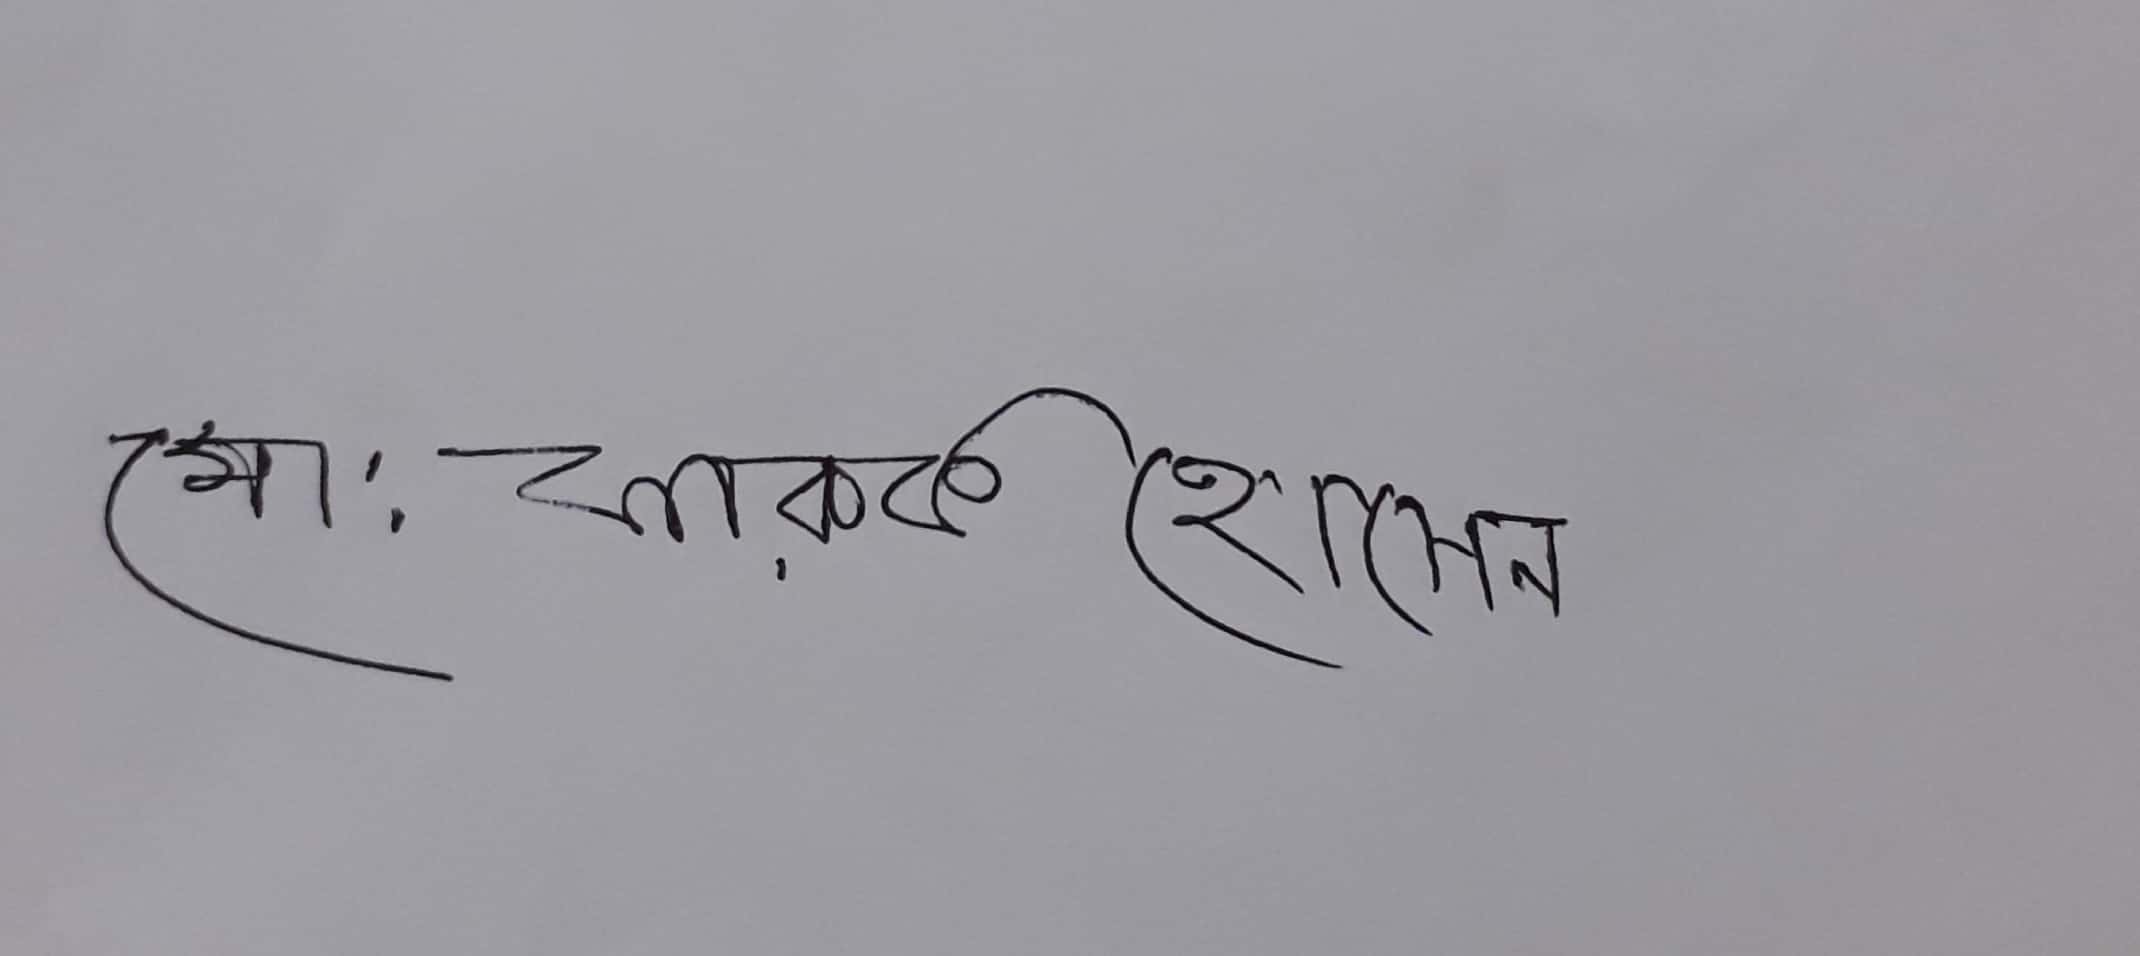 মো: ফারুক হোসেন